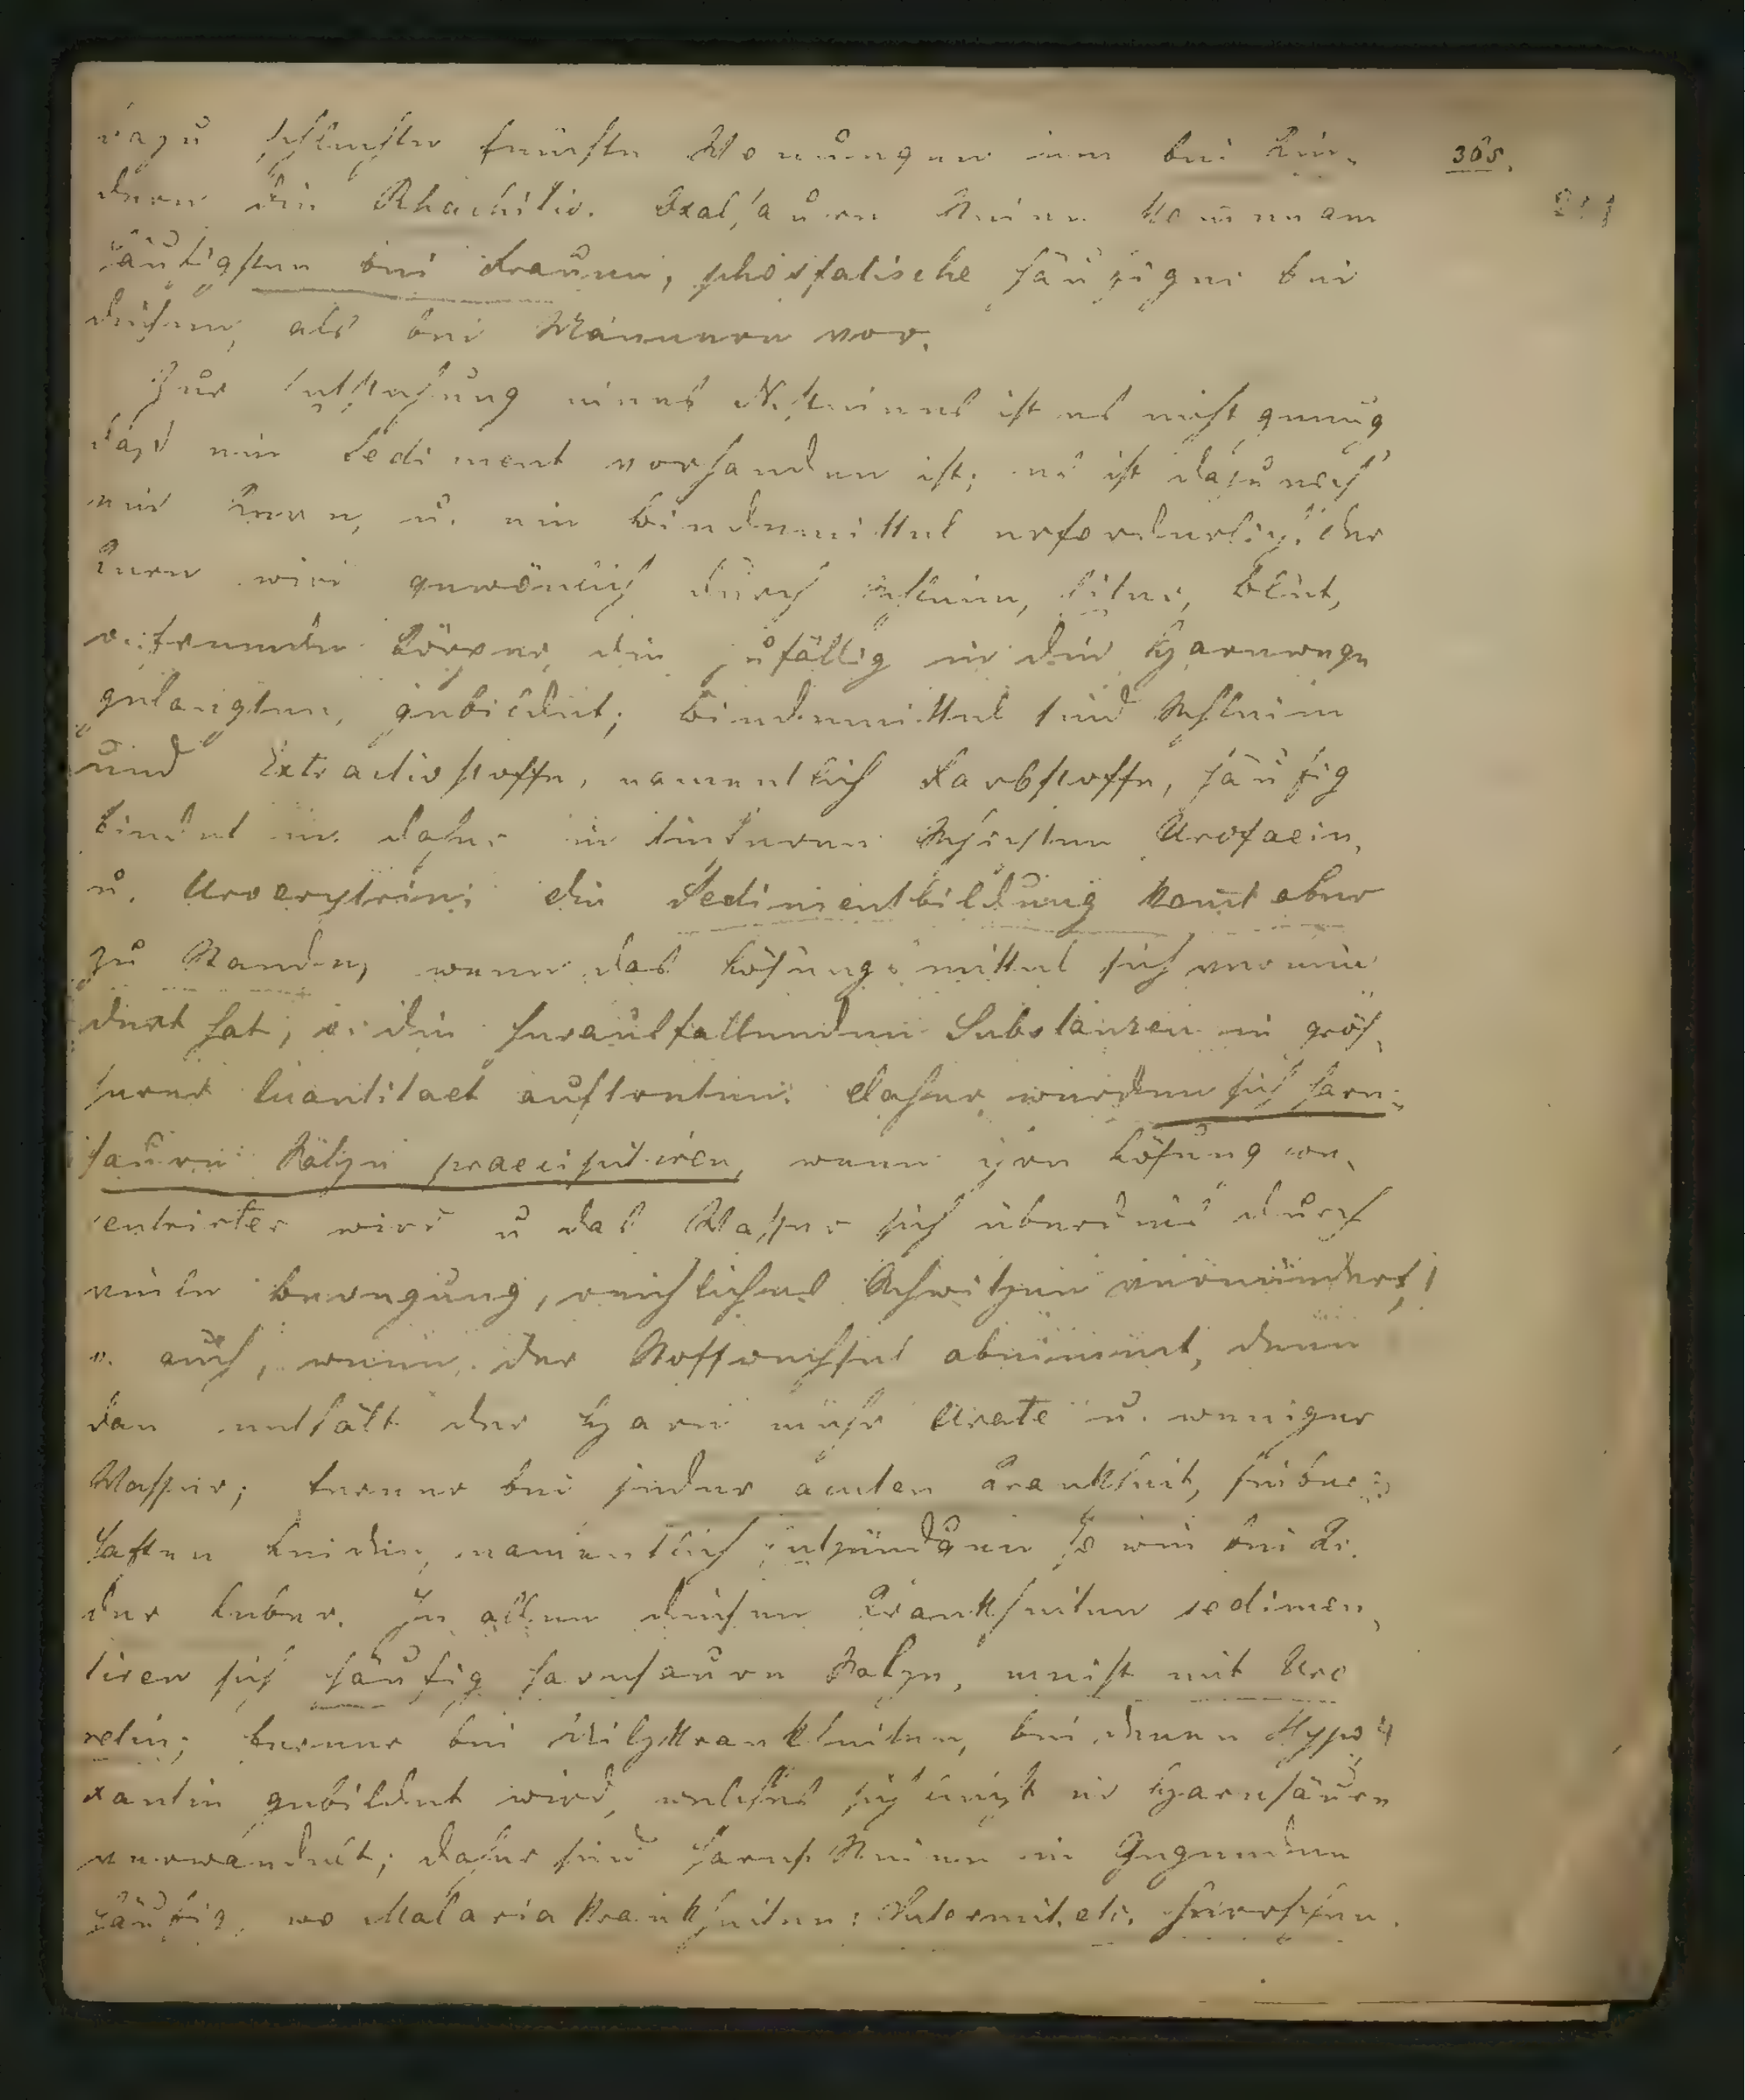 dazu schlechte feuchte Wonungen nun bei Kin-
dern die Rhachitis. Oxalsauren Steine kommen am
häufigsten bei Frauen, phosfatische häufiger bei
diesen, als bei Männern vor.
Zur Entstehung eines Nsteines ist es nicht genug
dass ein Sediment vorhanden ist; es ist dazu noch
ein Kern, u. ein Bindemittel erforderlich. Der
Kern wird gewönlich durch Schleim, Eiter, Blut,
o. fremde Körper, die zufällig in die Harnwege
gelangten, gebildet; Bindemittel sind Schleim
und Extractivstoffe, namentlich Farbstoffe, häufig
findet man daher in hinteren Schichten Urofaein,
u. Uroerytrin; die Sedimentbildung komt aber
zu Stande, wenn das Lösungsmittel sich vermin-
dert hat, o. die herausfallenden Substanzen in grös-
serer Quantitaet auftreten. Daher werden sich harn-
sauren Sälze praecipitiren, wenn ihre Lösung con-
centrirter wird u das Wasser sich überdies durch
viele Bewegung, reichliches Schwitzen vermindert;
o. auch, wenn der Stoffwechsel abnimmt, denn
dan enthält der Harn mehr Urate u. weniger
Wasser; ferner bei jeder acuten Krankheit, fieber-
haften Leiden, namentlich Entzündungen so wie bei K.
der Leber. In allen diesen Krankheiten sedimen-
tiren sich häufig harnsauren Salze, meist mit Uro
retin; ferner bei Milzkrankheiten, bei denen Hypo-
xantin gebildet wird, welches sich leicht in Harnsäure
verwandelt; daher sind harns. Steine in Gegenden
häufig, wo Malaria Krankheiten: Intermit. etc. herrschen.
305.